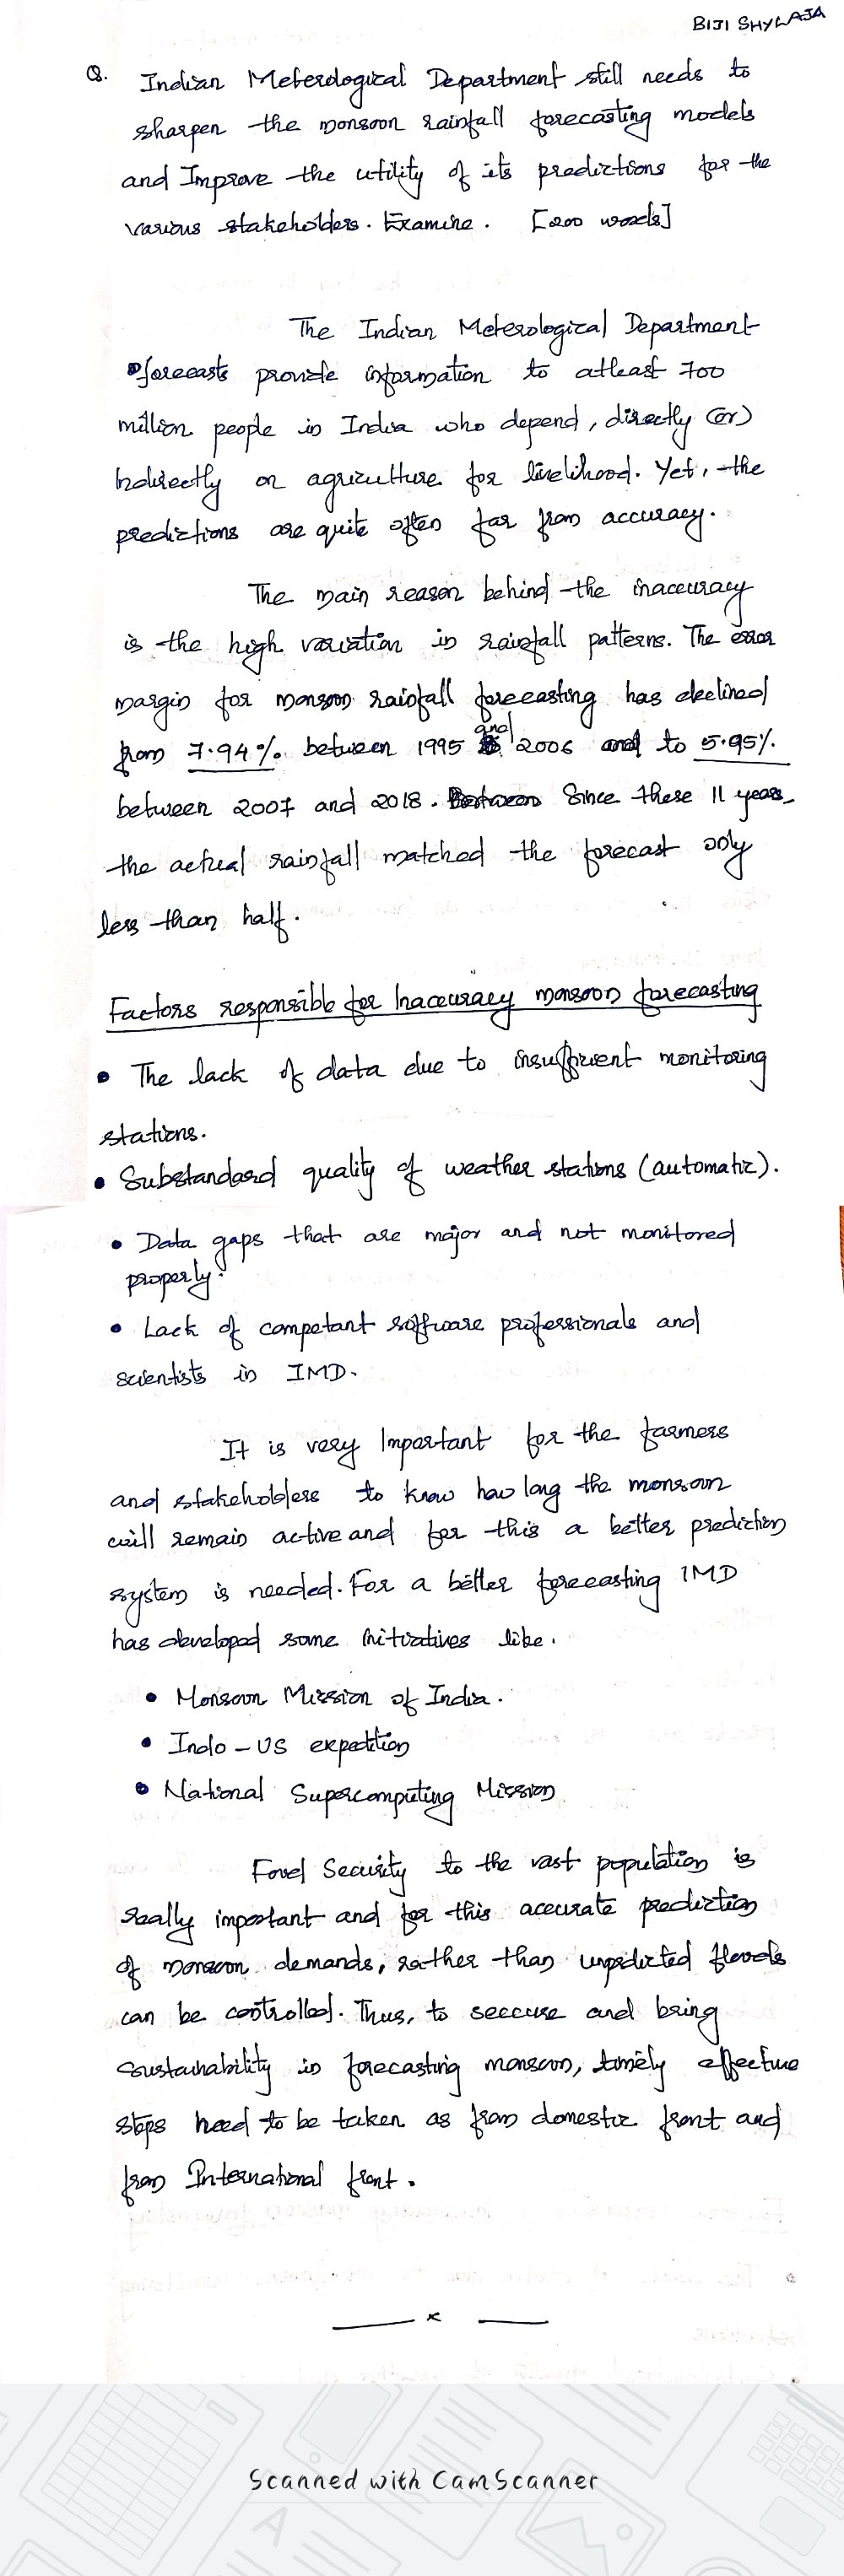 BIJI SHYLAJA
Q. Indian Meterological Department still needs to
sharpen the monsoon rainfall forecasting models
and Improve the utility of its predictions for the
various stakeholders. Examine. [200 words]
The Indian Meterological Department
forecasts provide information to atleast 700
million people in India who depend, directly (or)
Indirectly on agriculture for livelihood. Yet, the
predictions are quite often far from accuracy.
The main reason behind the inaccuracy
is the high variation in rainfall patterns. The error
margin for monsoon rainfall forecasting has declined
from 7.94% between 1995 and 2006 and to 5.95%
between 2007 and 2018. Between Since these 11 years
the actual rainfall matched the forecast only
less than half.
Factors responsible for Inaccuracy monsoon forecasting
• The lack of data due to insufficient monitoring
stations.
• Substandard quality of weather stations (automatic).
• Data gaps that are major and not monitored
properly.
• Lack of competant software professionals and
scientists in IMD.
It is very Important for the farmers
and stakeholders to know how long the monsoon
will remain active and for this a better prediction
system is needed. For a better forecasting IMD
has developed some initiatives like.
• Monsoon Mission of India.
• Indo-US expedition
• National Supercomputing Mission
Food Security to the vast population is
really important and for this accurate prediction
of monsoon demands, rather than unpredicted floods
can be controlled. Thus, to seccure and bring
sustainability in forecasting monsoon, timely effective
steps need to be taken as from domestic front and
from International front.
x
Scanned with CamScanner